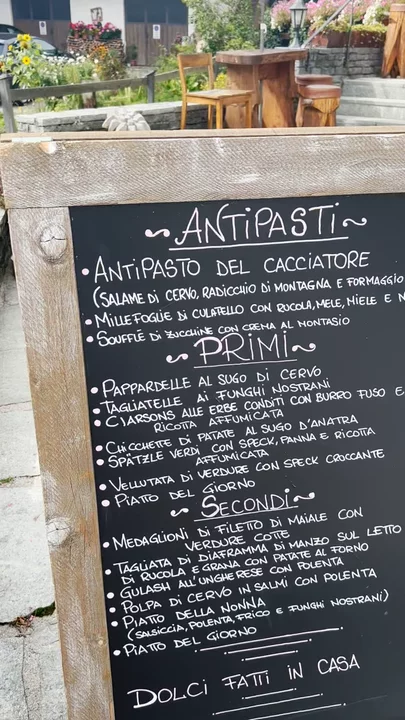 ANTIPASTI
• ANTIPASTO DEL CACCIATORE
(SALAME DI CERVO, RADICCHIO DI MONTAGNA E FORMAGGIO
• MILLEFOGLIE DI CULATELLO CON RUCOLA, MELE, MIELE E N
• SOUFFLÉ DI ZUCCHINE CON CREMA AL MONTASIO
PRIMI
• PAPPARDELLE AL SUGO DI CERVO
• TAGLIATELLE AI FUNGHI NOSTRANI
• CJARSONS ALLE ERBE CONDITI CON BURRO FUSO E
RICOTTA AFFUMICATA
• CHICCHETTE DI PATATE AL SUGO D'ANATRA
• SPÄTZLE VERDI CON SPECK, PANNA E RICOTTA
AFFUMICATA
• VELLUTATA DI VERDURE CON SPECK CROCCANTE
• PIATTO DEL GIORNO
SECONDI
• MEDAGLIONI DI FILETTO DI MAIALE CON
VERDURE COTTE
• TAGLIATA DI DIAFRAMMA DI MANZO SUL LETTO
DI RUCOLA E GRANA CON PATATE AL FORNO
• GULASH ALL'UNGHERESE CON POLENTA
• POLPA DI CERVO IN SALMÌ CON POLENTA
• PIATTO DELLA NONNA
(SALSICCIA, POLENTA, FRICO E FUNGHI NOSTRANI)
• PIATTO DEL GIORNO
DOLCI FATTI IN CASA